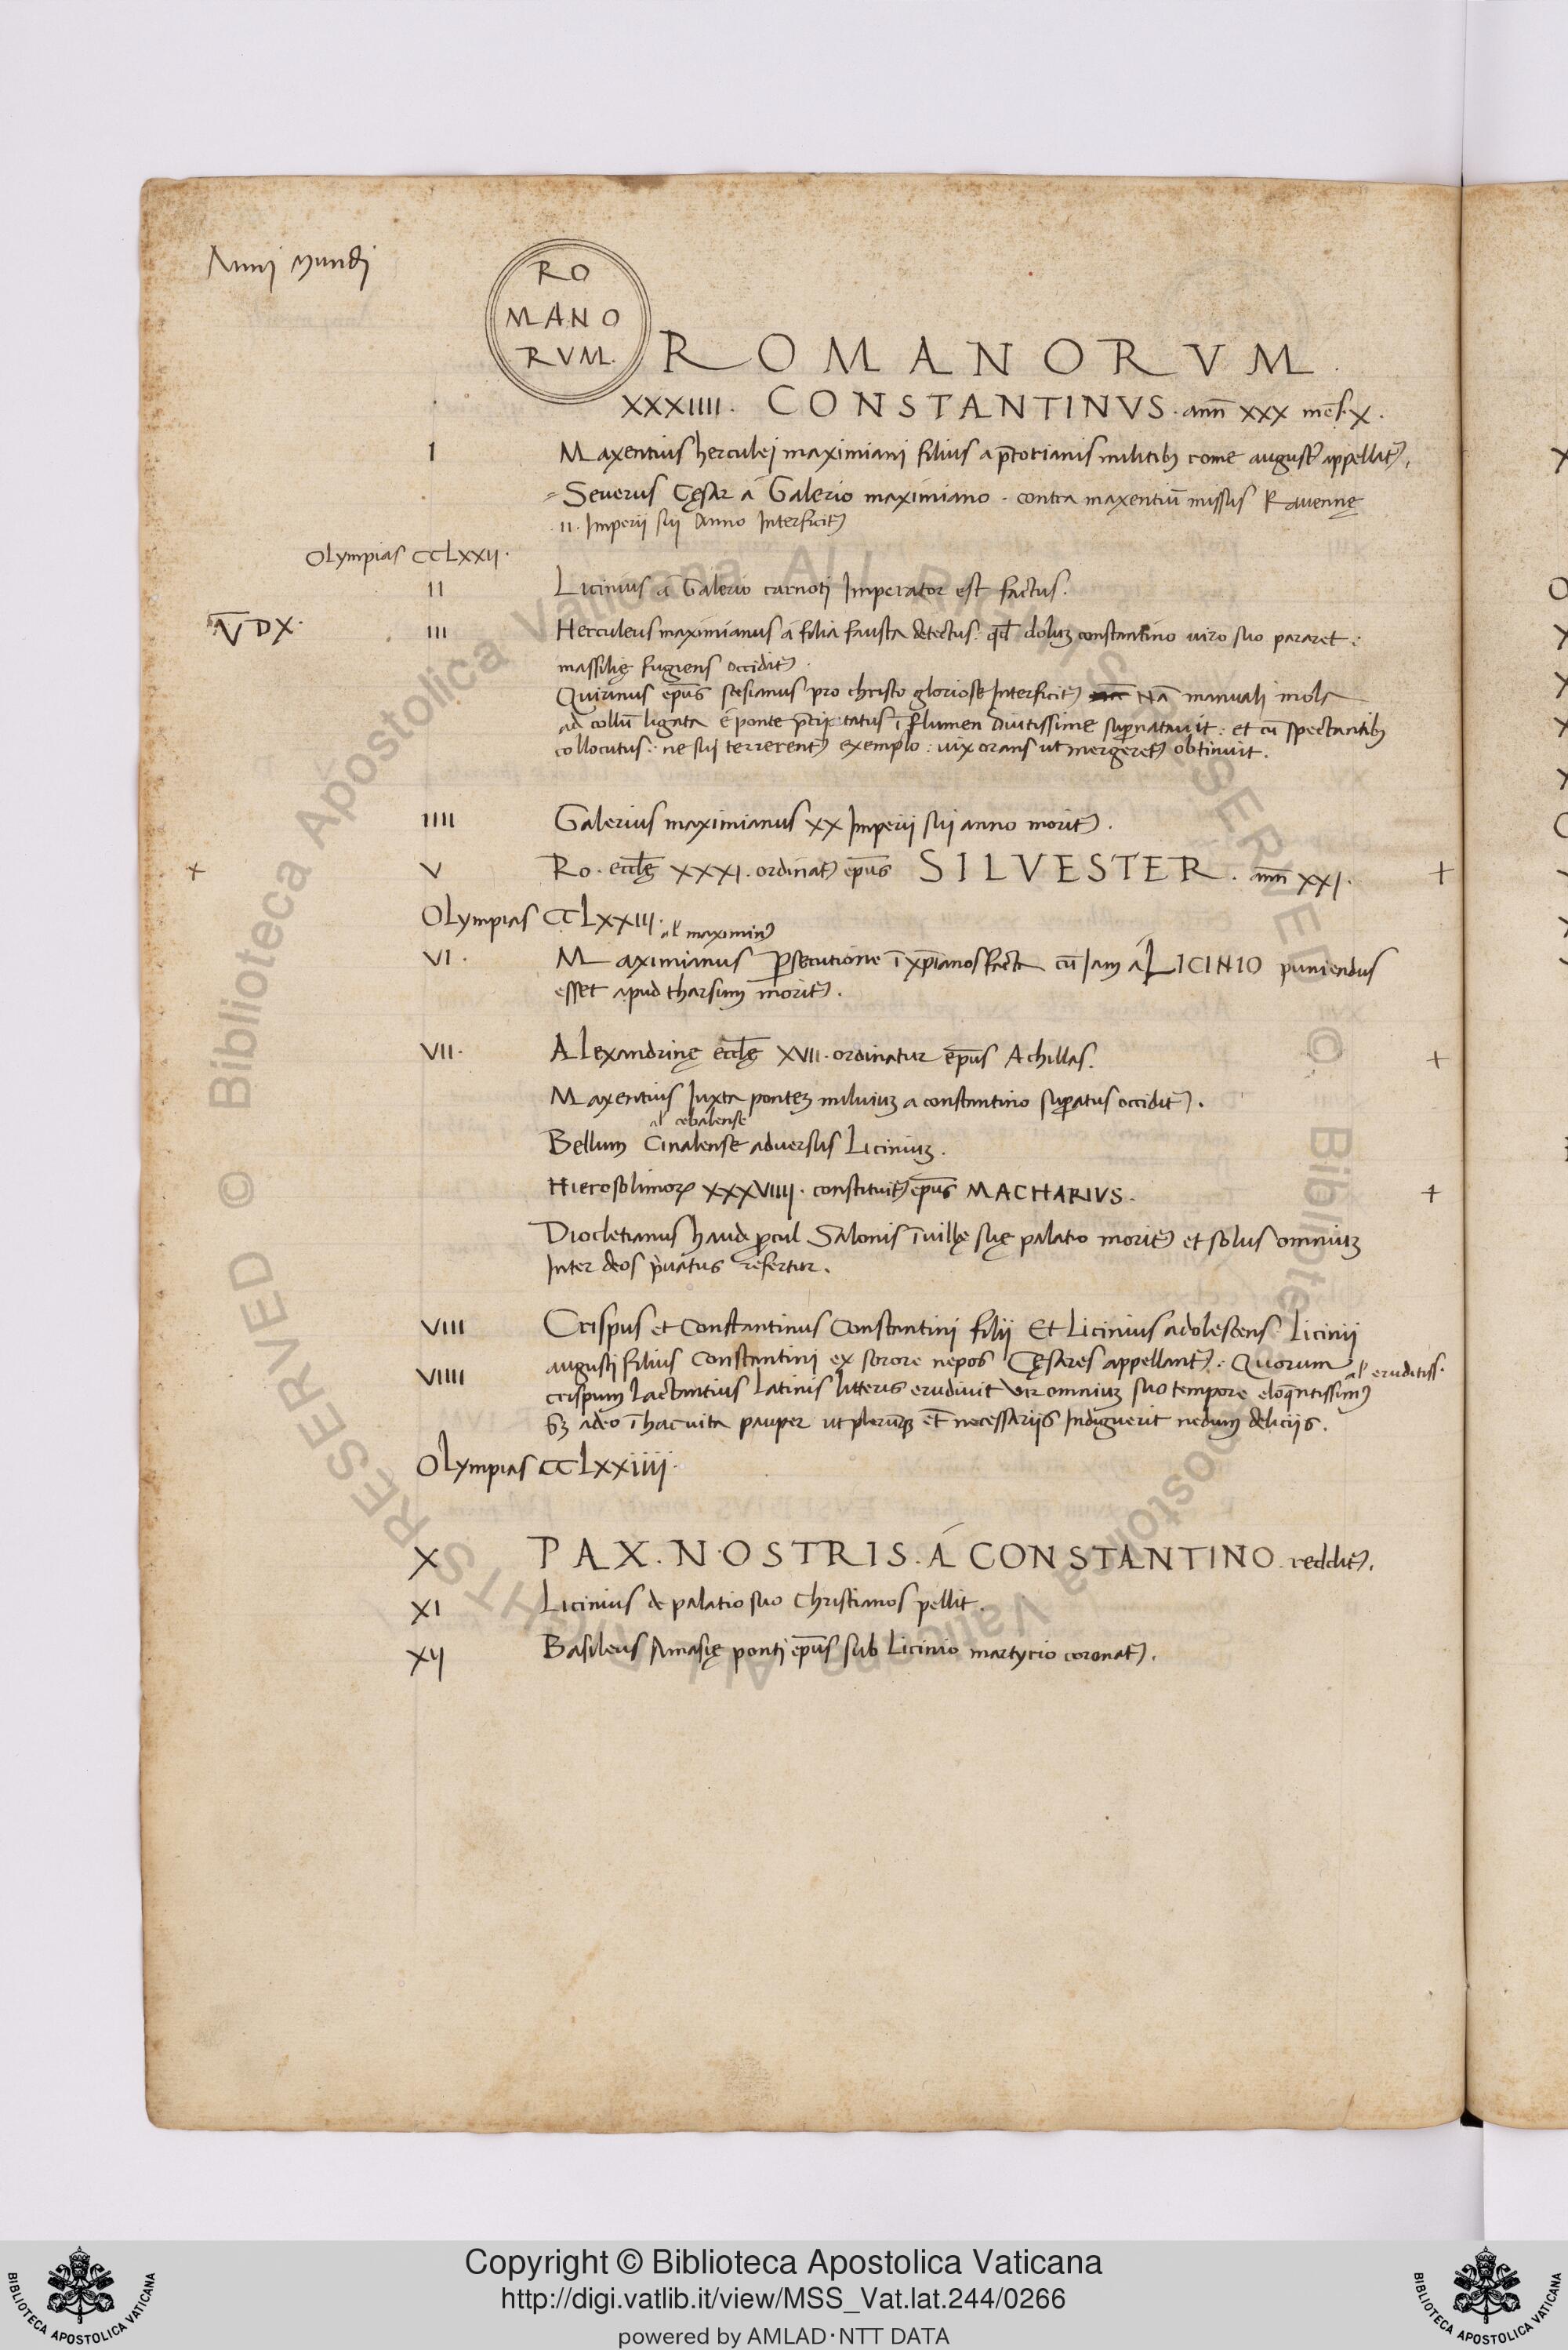 Anni Mundi
RO
MANO
RVM.
ROMANORVM.
XXXIIII. CONSTANTINVS. ann̄ XXX mēs. X.
I Maxentius herculei maximiani filius a p̄torianis militib; rome august᾽ appellat᾽.
Seuerus Cęsar á Galerio maximiano. contra maxentiū missus Rauennę
II. Imperii sui Anno Interficit᾽
Olympias CCLXXII.
II Licinius á Galerio carnoti Imperator est factus.
V̄DX. III Herculeus maximianus á filia fausta detectus: qd̄ dolum constantino uiro suo pararet:
massilię fugiens occidit᾽.
Quirinus ep̄us scesianus pro christo gloriose Interficit᾽ Nā manuali mola
ad collū ligata é ponte p̄cipitatus ī flumen Diutissime suꝑnatauit: et cū spectantib;
collocutus: ne sui terrerent᾽ exemplo: uix orans ut mergeret᾽ obtinuit.
IIII Galerius maximianus XX Imperii sui anno morit᾽.
+ V Ro. eccl̄ę XXXI. ordinat᾽ ep̄us SILVESTER. ann̄ XXI. +
Olympias CCLXXIII.
al᾽ maximin᾽
VI. Maximianus ꝑsecutione ī xp̄ianos facta cū Iam á LICINIO puniendus
esset apud tharsum morit᾽.
VII. Alexandrinę eccl̄ę XVII. ordinatur ep̄us Achillas. +
Maxentius Iuxta pontem miluium a constantino suꝑatus occidit᾽.
al᾽ cebalense
Bellum Cinalense aduersus Licinium.
Hierosolimoꝝ XXXVIIII. constituit᾽ ep̄us MACHARIVS. +
Diocletianus haud ꝓcul Salonis ī uillę suę palatio morit᾽ et solus omnium
Inter deos pͥuatus refertur.
VIII Crispus et Constantinus Constantini filii Et Licinius adolescens Licinii
VIIII augusti filius Constantini ex sorore nepos Cęsares appellant᾽: Quorum
al᾽ eruditiss.
crispum Lactantius Latinis litteris erudiuit Vir omnium suo tempore eloq̄ntissim᾽
sꝫ adeo ī hac uita pauper ut plerūqꝫ et̄ necessariis Indiguerit nedum deliciis.
Olympias CCLXXIIII.
X PAX. NOSTRIS. Á CONSTANTINO. reddit᾽.
XI Licinius de palatio suo Christianos pellit.
XII Basileus Amasię ponti ep̄us sub Licinio martyrio coronat᾽.
© Biblioteca Apostolica Vaticana ALL RIGHTS RESERVED
© Biblioteca Apostolica Vaticana ALL RIGHTS RESERVED
Copyright © Biblioteca Apostolica Vaticana
http://digi.vatlib.it/view/MSS_Vat.lat.244/0266
powered by AMLAD·NTT DATA
BIBLIOTECA APOSTOLICA VATICANA
BIBLIOTECA APOSTOLICA VATICANA